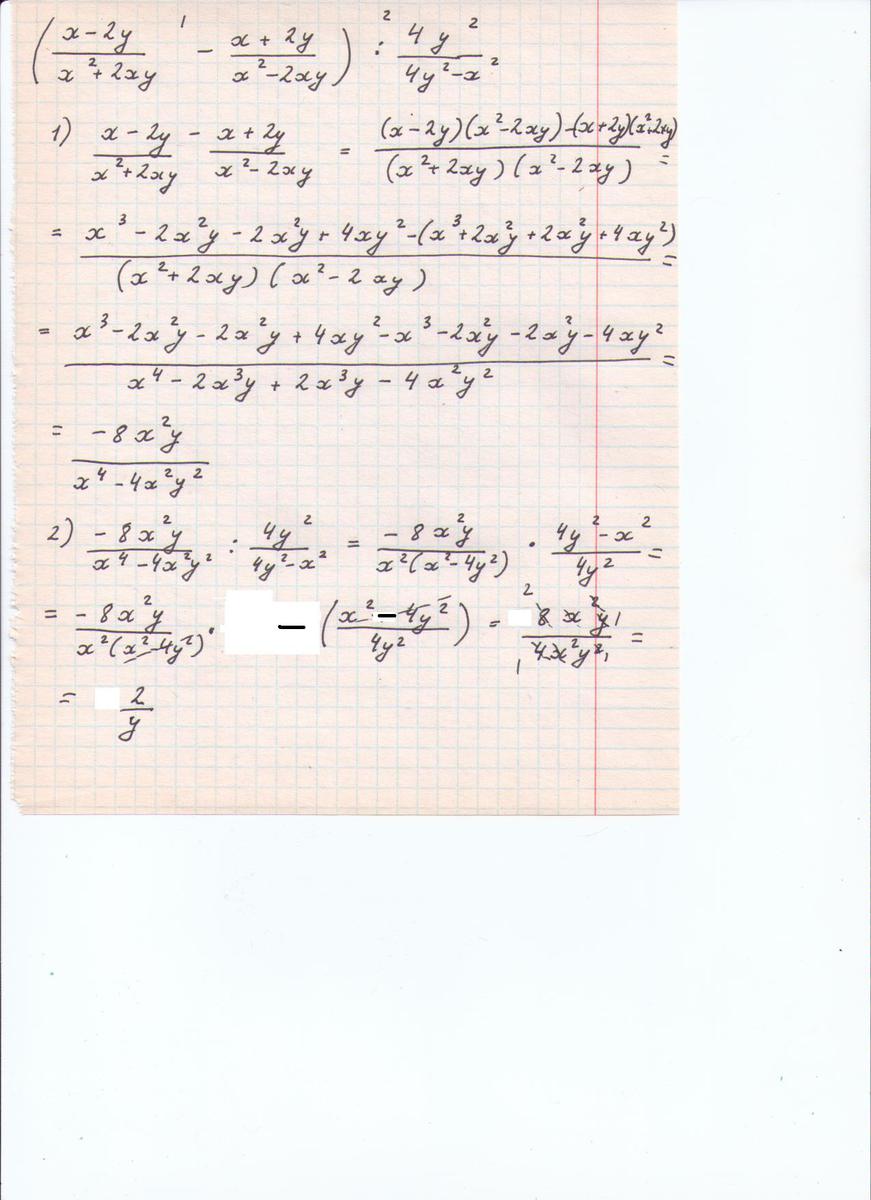 (x-2y/x²+2xy - x+2y/x²-2xy) : 4y²/4y²-x²
1 2
1) x-2y/x²+2xy - x+2y/x²-2xy = (x-2y)(x²-2xy)-(x+2y)(x²+2xy)/(x²+2xy)(x²-2xy) =
= x³-2x²y-2x²y+4xy²-(x³+2x²y+2x²y+4xy²)/(x²+2xy)(x²-2xy) =
= x³-2x²y-2x²y+4xy²-x³-2x²y-2x²y-4xy²/x⁴-2x³y+2x³y-4x²y² =
= -8x²y/x⁴-4x²y²
2) -8x²y/x⁴-4x²y² : 4y²/4y²-x² = -8x²y/x²(x²-4y²) · 4y²-x²/4y² =
= -8x²y/x²(x²-4y²) · - (x²-4y²/4y²) = 8x²y/4x²y² =
2 1 1 1
= 2/y